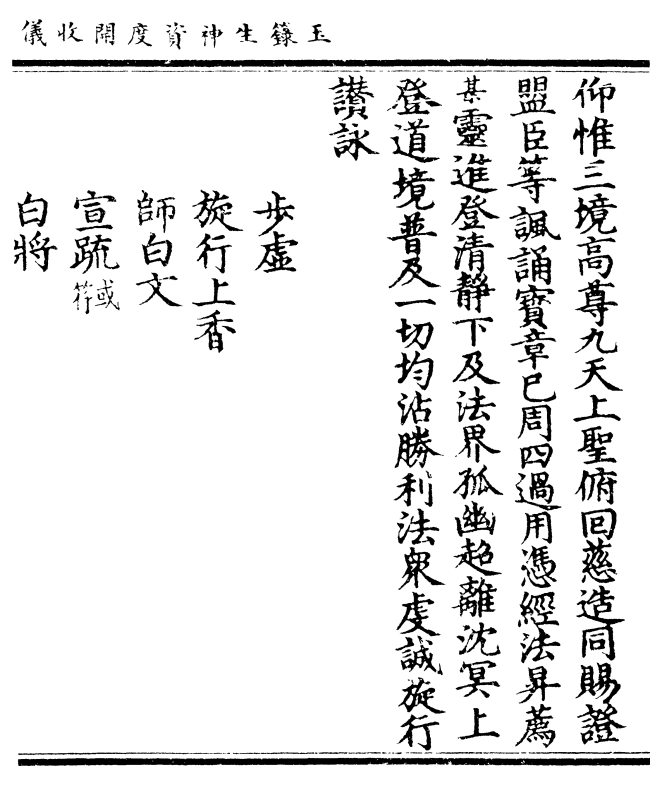 玉籙生神資度開收儀
仰惟三境高尊九天上聖俯回慈造同賜證
盟臣等諷誦寶章已周四過用憑經法昇薦
某靈進登清靜下及法界孤幽超離沈冥上
登道境普及一切均沾勝利法眾虔誠旋行
讃詠
步虛
旋行上香
師白文
宣疏或符
白將